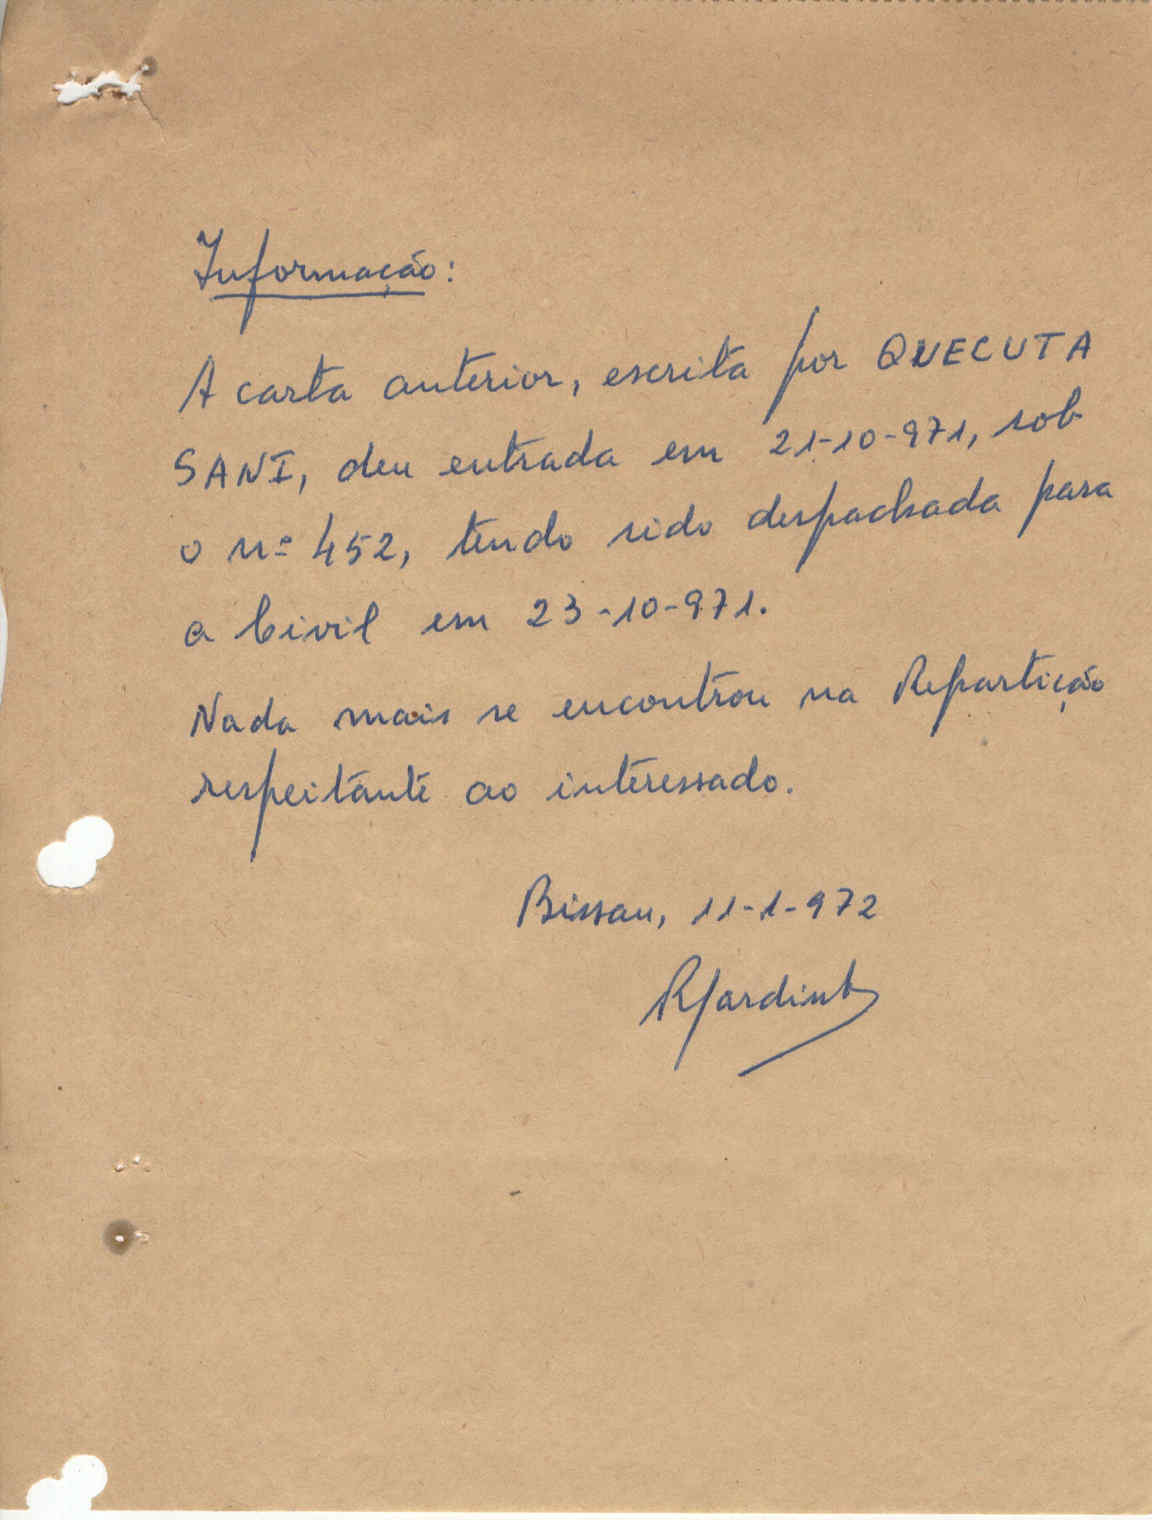 Informação:
A carta anterior, escrita por QUECUTA
SANI, deu entrada em 21-10-971, sob
o nº 452, tendo sido despachada para
a Civil em 23-10-971.
Nada mais se encontrou na Repartição
respeitante ao interessado.
Bissau, 11-1-972